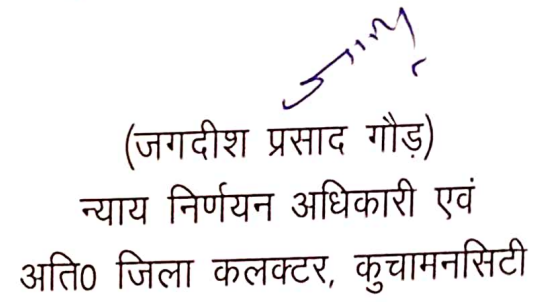 (जगदीश प्रसाद गौड़)
न्याय निर्णयन अधिकारी एवं
अति0 जिला कलक्टर, कुचामनसिटी